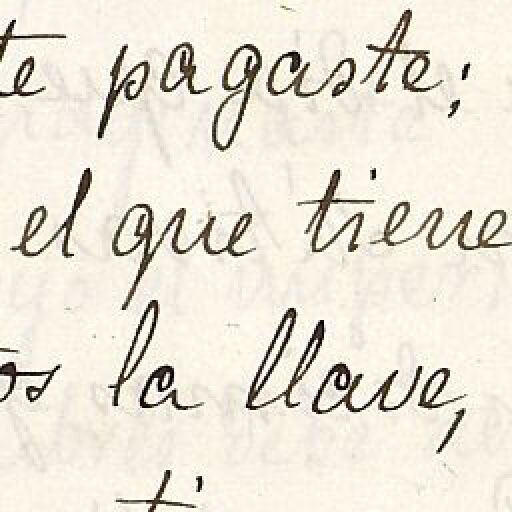 te pagaste;
el que tiene
os la llave,
ti